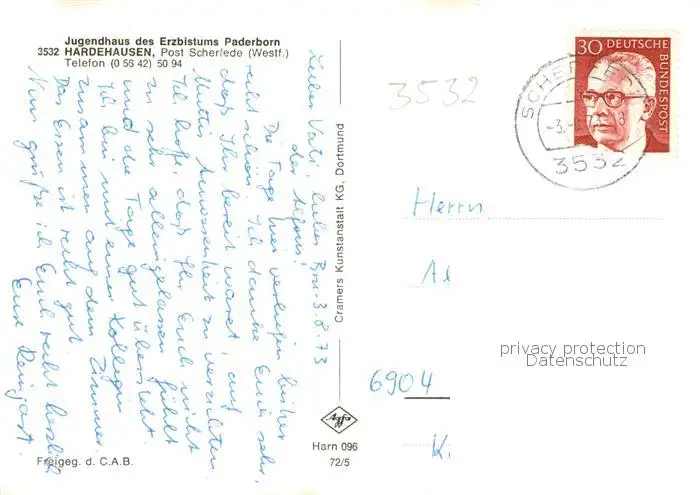 Jugendhaus des Erzbistums Paderborn
3532 HARDEHAUSEN, Post Scherfede (Westf.)
Telefon (0 56 42) 50 94
3.8.73
Lieber Vati, lieber Bru-
der Alfons!
Die Tage hier verliefen bisher
recht schön. Ich danke Euch sehr,
daß Ihr bereit waret, auf
Mutters Anwesenheit zu verzichten.
Ich hoffe, daß Ihr Euch nicht
zu sehr alleingelassen fühlt
und die Tage gut übersteht.
Ich bin mit einer Kollegin
zusammen auf dem Zimmer.
Das Essen ist recht gut.
Nun grüße ich Euch recht herzlich
Eure
Freigeg. d. C.A.B.
Cramers Kunstanstalt KG. Dortmund
Agfa
Harn 096
72/5
3532
30 DEUTSCHE
BUNDESPOST
SCHERFEDE
3532
Herrn
Al
privacy protection
Datenschutz
6904
K